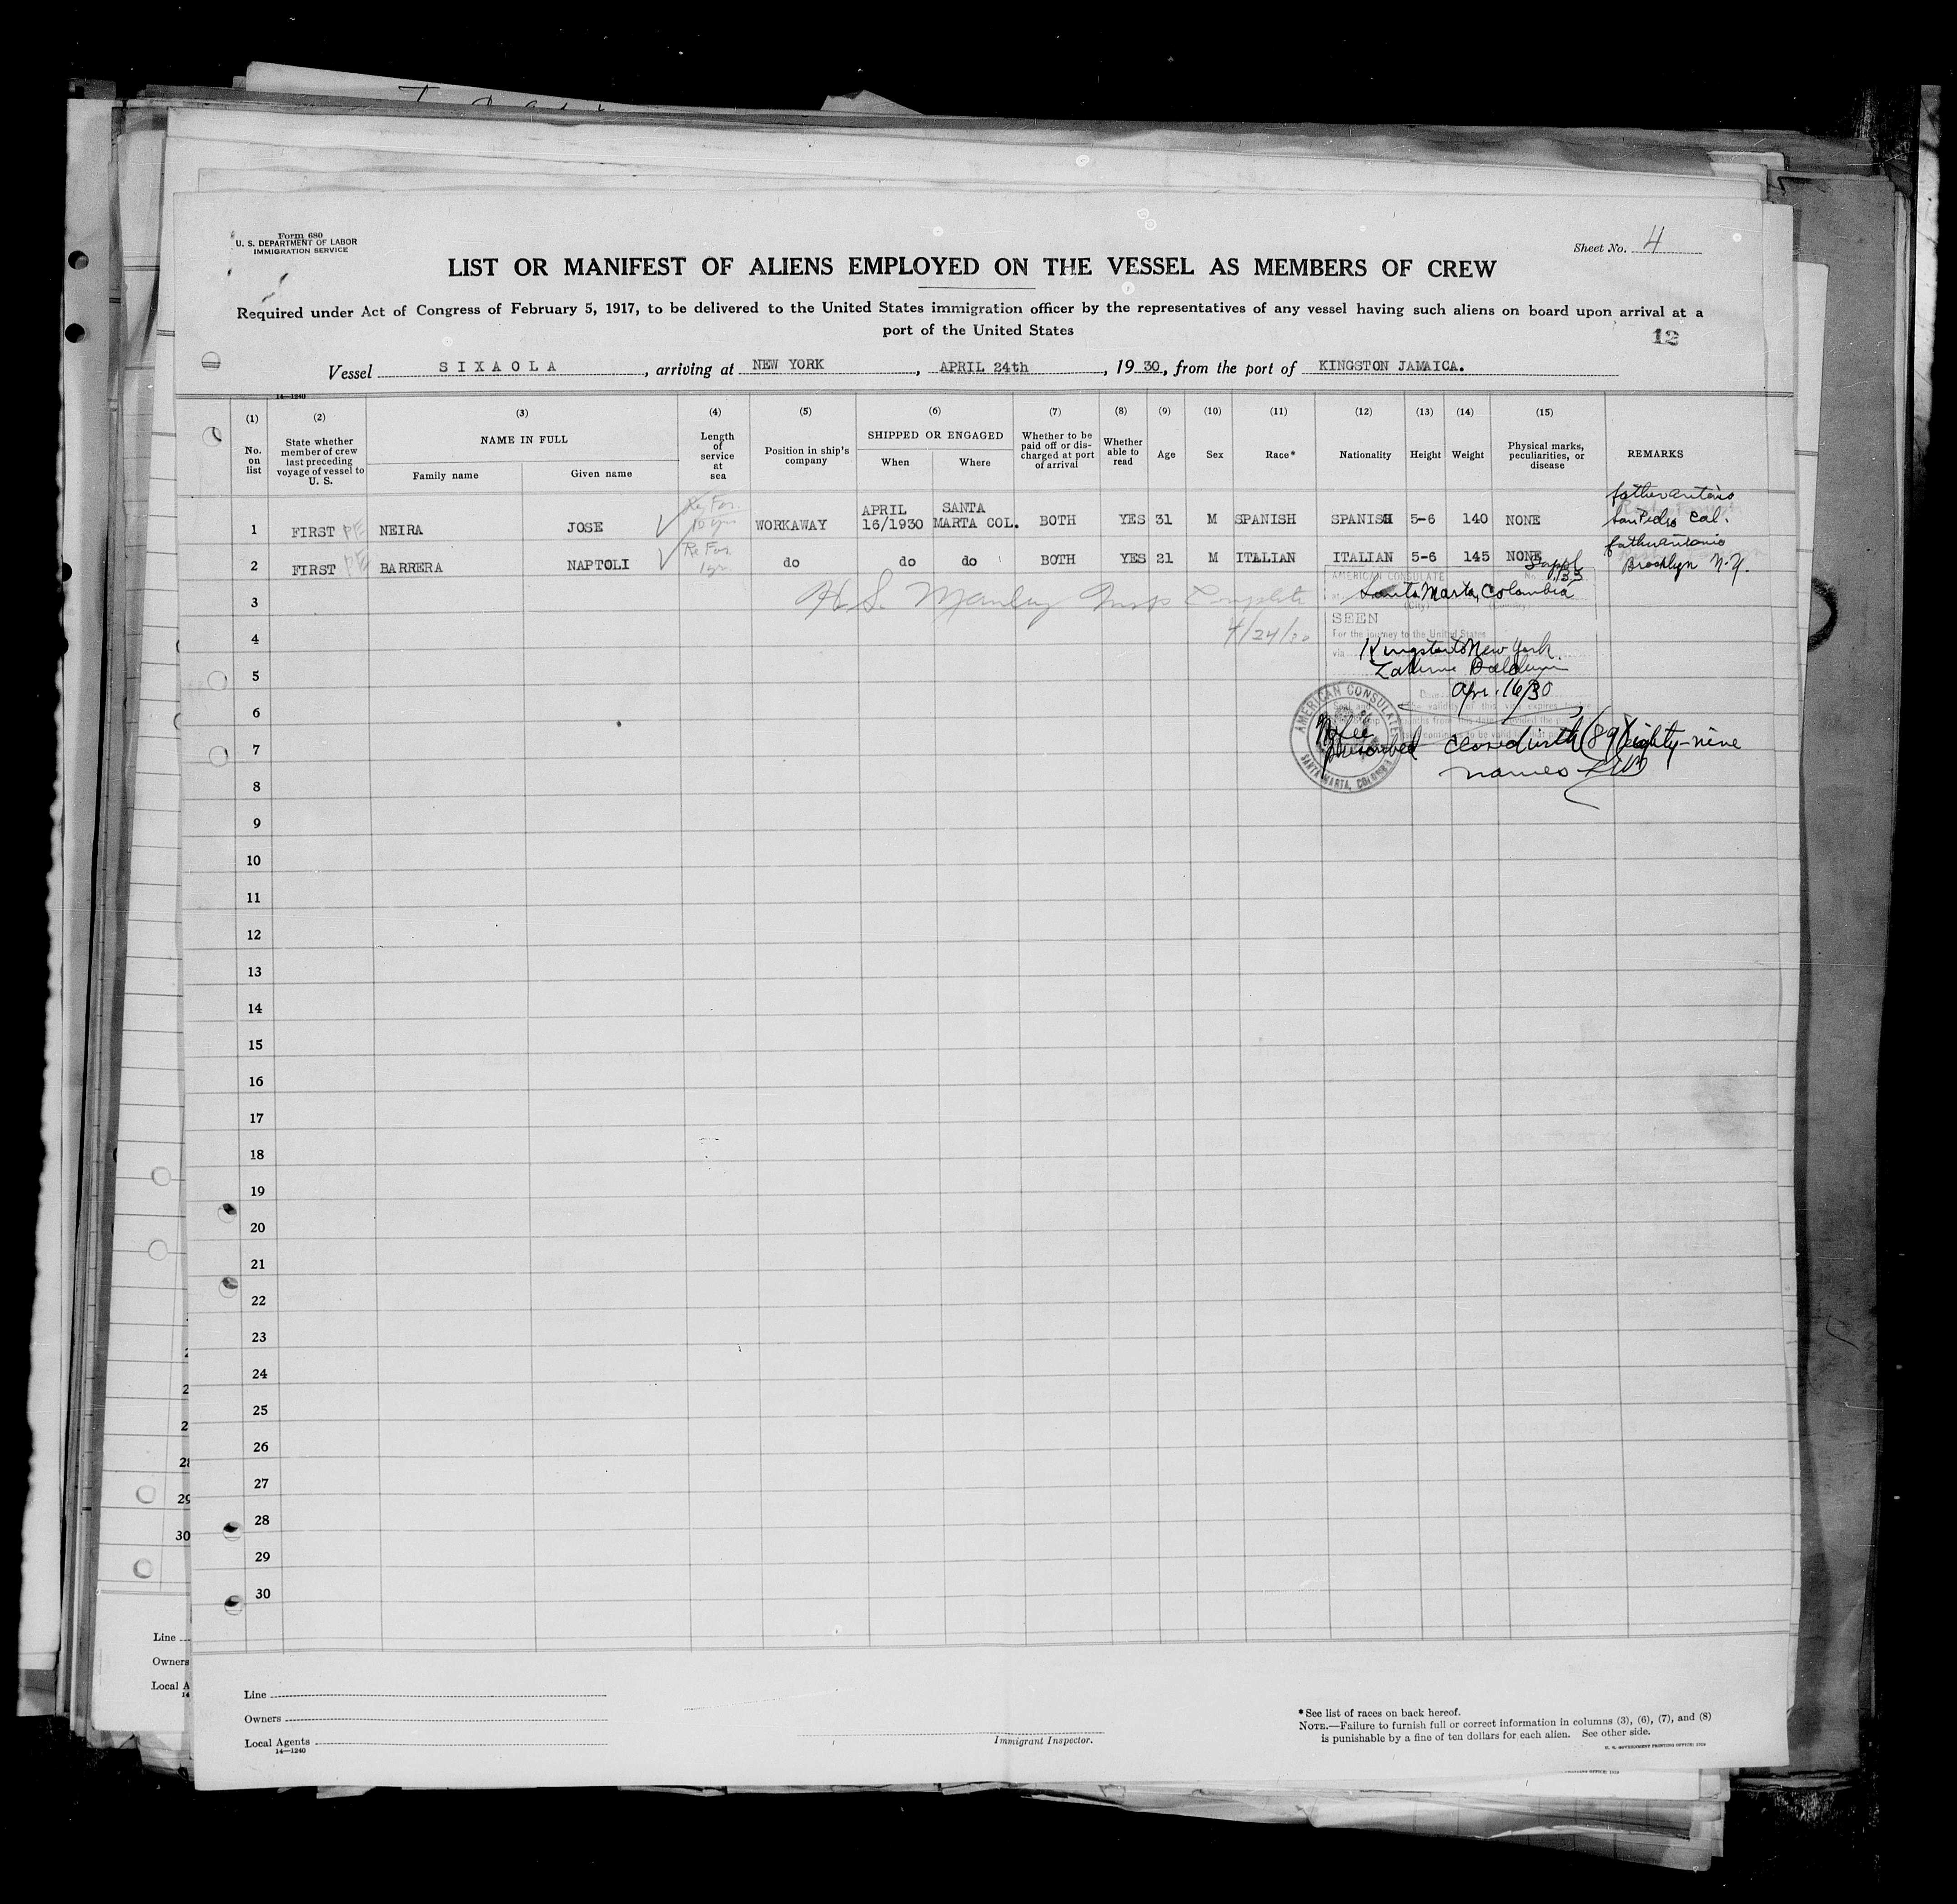 Form 680
U. S. DEPARTMENT OF LABOR
IMMIGRATION SERVICE
Sheet No. 4
LIST OR MANIFEST OF ALIENS EMPLOYED ON THE VESSEL AS MEMBERS OF CREW
Required under Act of Congress of February 5, 1917, to be delivered to the United States immigration officer by the representatives of any vessel having such aliens on board upon arrival at a
port of the United States
12
Vessel SIXAOLA, arriving at NEW YORK, APRIL 24th, 1930, from the port of KINGSTON JAMAICA.
14—1240
(1) No. on list
(2) State whether member of crew last preceding voyage of vessel to U. S.
(3) NAME IN FULL
Family name
Given name
(4) Length of service at sea
(5) Position in ship's company
(6) SHIPPED OR ENGAGED
When
Where
(7) Whether to be paid off or discharged at port of arrival
(8) Whether able to read
(9) Age
(10) Sex
(11) Race*
(12) Nationality
(13) Height
(14) Weight
(15) Physical marks, peculiarities, or disease
REMARKS
1 FIRST PE NEIRA JOSE 10 yrs WORKAWAY APRIL 16/1930 SANTA MARTA COL. BOTH YES 31 M SPANISH SPANISH 5-6 140 NONE father Antonio San Pedro Cal.
2 FIRST PE BARRERA NAPTOLI 1 yr. do do do BOTH YES 21 M ITALIAN ITALIAN 5-6 145 NONE father Antonio Brooklyn N.Y.
3
Insp Complete
4/24/30
AMERICAN CONSULATE
Santa Marta, Colombia
(City) (Country)
SEEN
For the journey to the United States
via Kingston to New York
Date Apr. 16/30
AMERICAN CONSULATE
SANTA MARTA, COLOMBIA
No fee prescribed
Closed with (89) eighty-nine
names
4
5
6
7
8
9
10
11
12
13
14
15
16
17
18
19
20
21
22
23
24
25
26
27
28
29
30
Line
Owners
Local Agents
14—1240
Immigrant Inspector.
*See list of races on back hereof.
NOTE.—Failure to furnish full or correct information in columns (3), (6), (7), and (8)
is punishable by a fine of ten dollars for each alien. See other side.
U. S. GOVERNMENT PRINTING OFFICE: 1929
29
30
Line
Owners
Local A